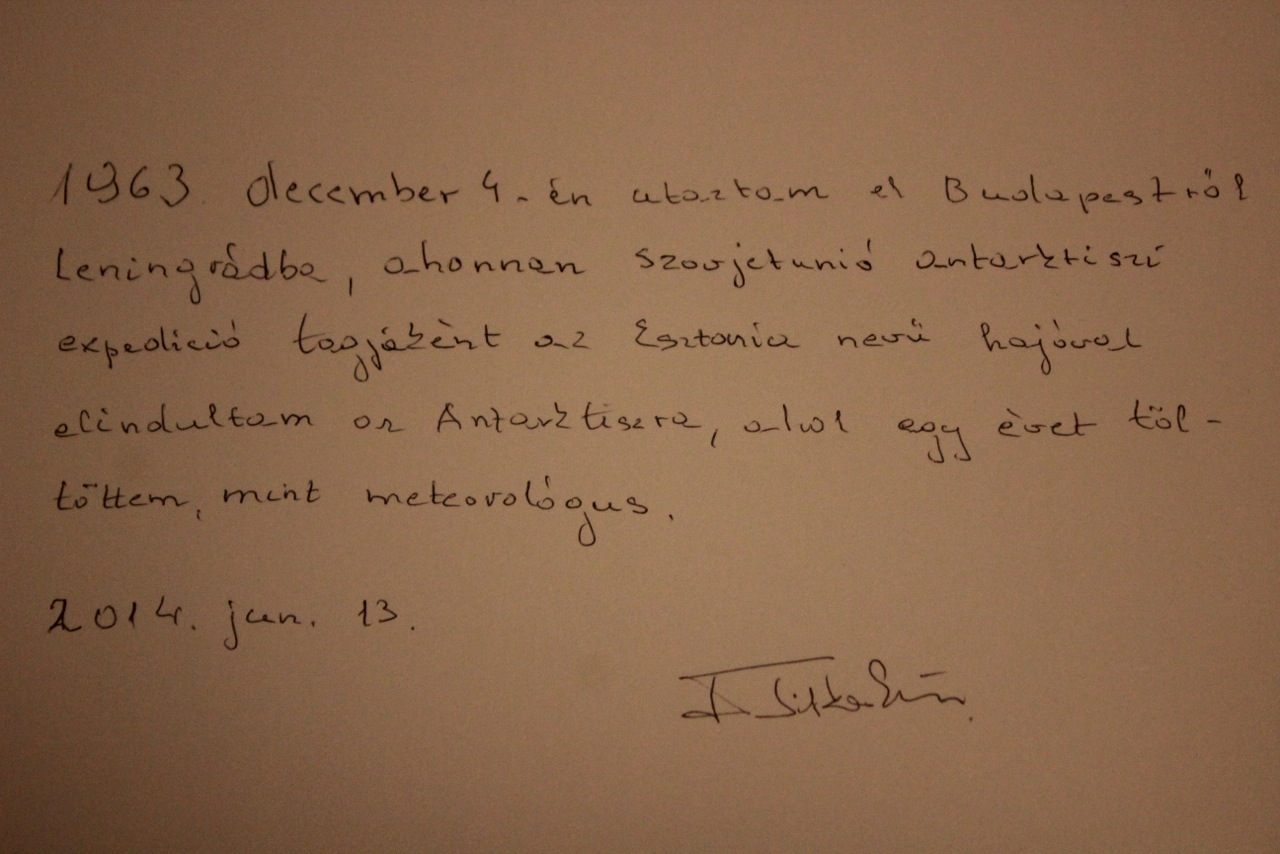 1963. december 4.-én utaztam el Budapestről
Leningrádba, ahonnan szovjetunió antarktiszi
expedíció tagjáként az Esztonia nevű hajóval
elindultam az Antarktiszra, ahol egy évet töl-
töttem, mint meteorológus.
2014. jun. 13.